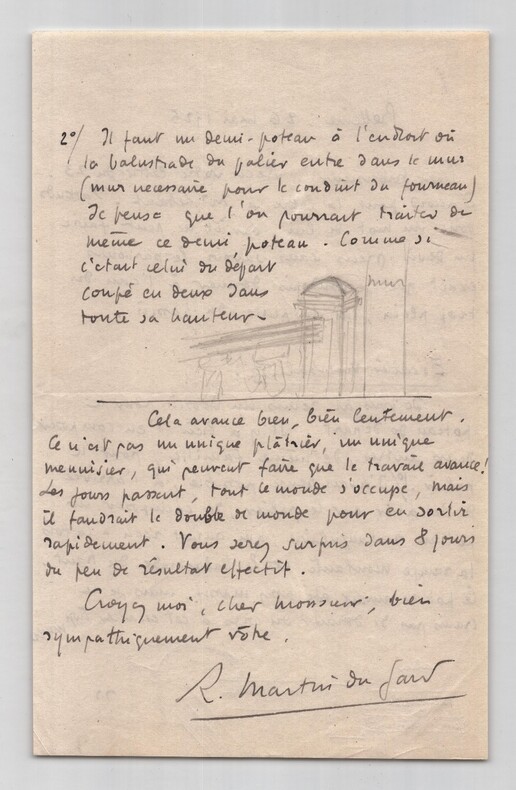 2°/ Il faut un demi-poteau à l'endroit où
la balustrade du palier entre dans le mur
(mur nécessaire pour le conduit du fourneau)
Je pense que l'on pourrait traiter de
même ce demi poteau. Comme si
c'était celui du départ
coupé en deux dans
toute sa hauteur-
mur
Cela avance bien, bien lentement.
Ce n'est pas un unique plâtrier, un unique
menuisier, qui peuvent faire que le travail avance!
Les jours passent, tout le monde s'occupe, mais
il faudrait le double de monde pour en sortir
rapidement. Vous serez surpris dans 8 jours
du peu de résultat effectif.
Croyez moi, cher Monsieur, bien
sympathiquement vôtre.
R. Martin du Gard